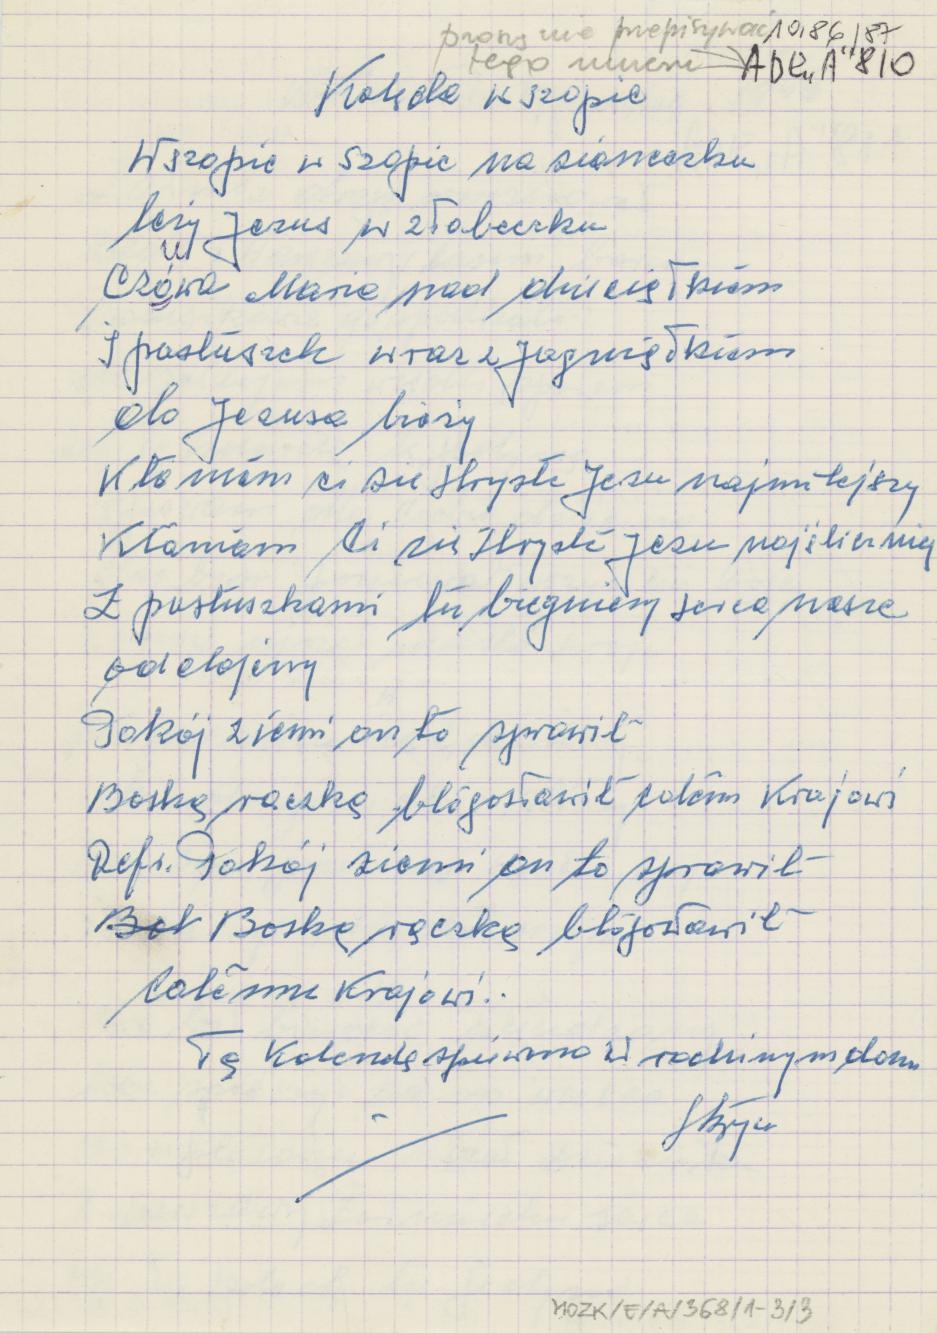 proszę nie przepisywać 10.86/87
tego numeru → ADL "A" 810
Kolęda w szopie
W szopie w szopie na sianeczku
leży Jezus w złobeczku
u
Czówa Maria nad dzieciątkiem
I pastuszek wraz z Jagniątkiem
do Jezusa bieży
Kłaniam ci sie Hryste Jezu najmilejszy
Kłaniam Ci się Hryste Jezu najśliczniej
Z pastuszkami tu biegniemy serca nasze
oddajemy
Pokój ziemi on to sprawił
Boską rączką błogosławił całem Krajowi
Refr. Pokój ziemi on to sprawił
Bos Boską rączką błogosławił
całemu Krajowi..
Tą Kolendę śpiewano w rodzinym domu
MOZK/E/A/368/1-3/3